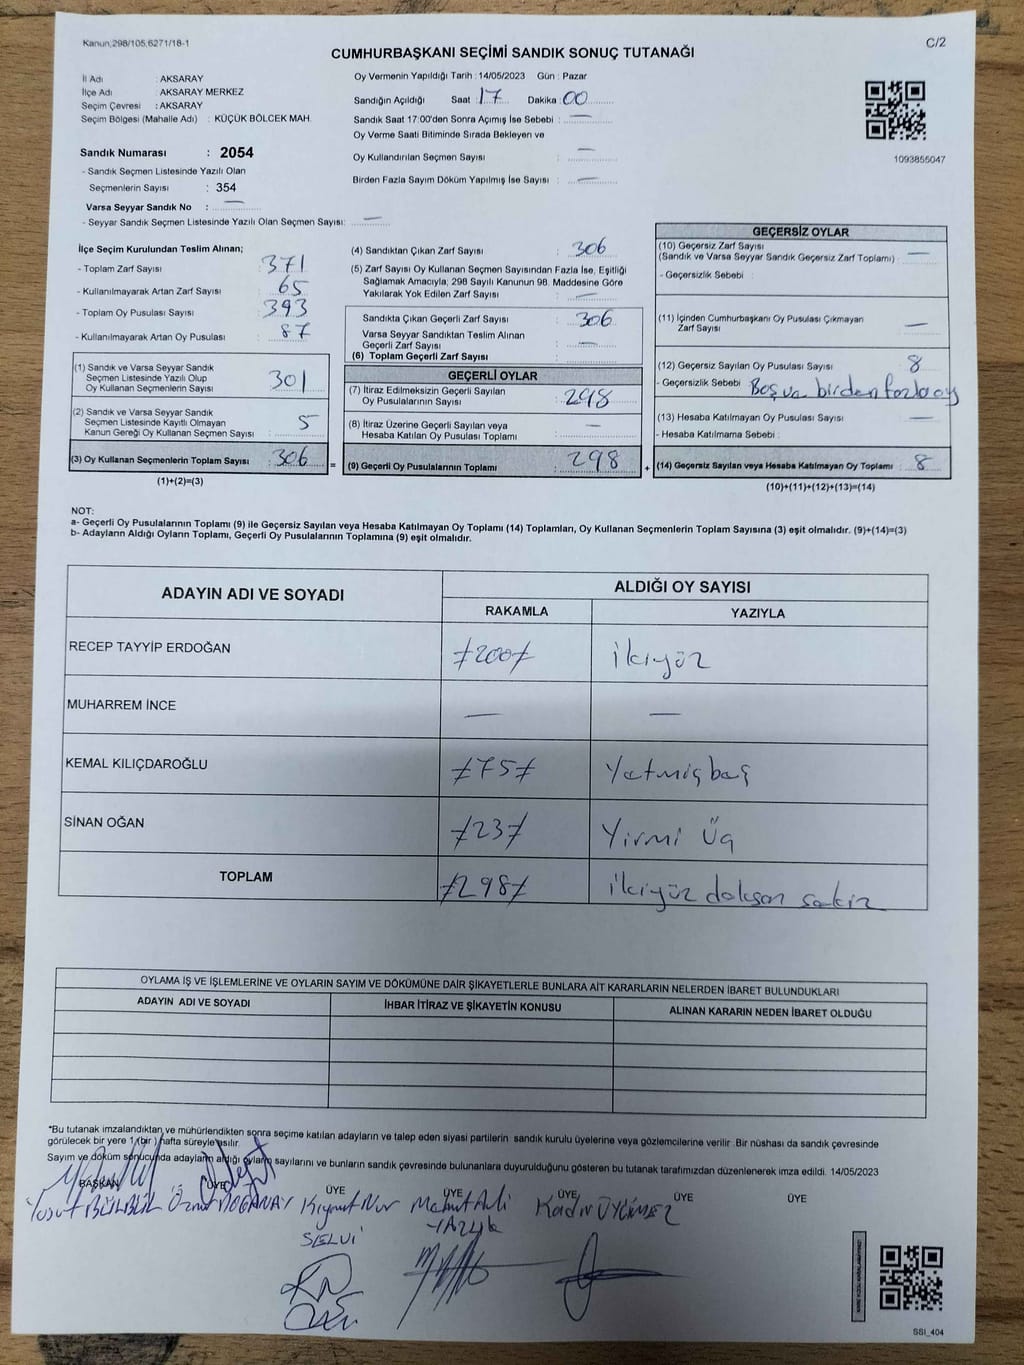 Kanun;298/105,6271/18-1
C/2
CUMHURBAŞKANI SEÇİMİ SANDIK SONUÇ TUTANAĞI
İl Adı : AKSARAY
İlçe Adı : AKSARAY MERKEZ
Seçim Çevresi : AKSARAY
Seçim Bölgesi (Mahalle Adı) : KÜÇÜK BÖLCEK MAH.
Sandık Numarası : 2054
- Sandık Seçmen Listesinde Yazılı Olan
Seçmenlerin Sayısı : 354
Varsa Seyyar Sandık No : —
- Seyyar Sandık Seçmen Listesinde Yazılı Olan Seçmen Sayısı: —
Oy Vermenin Yapıldığı Tarih : 14/05/2023 Gün : Pazar
Sandığın Açıldığı Saat : 17 Dakika : 00
Sandık Saat 17:00'den Sonra Açımış İse Sebebi : —
Oy Verme Saati Bitiminde Sırada Bekleyen ve
Oy Kullandırılan Seçmen Sayısı : —
Birden Fazla Sayım Döküm Yapılmış İse Sayısı : —
1093855047
İlçe Seçim Kurulundan Teslim Alınan;
- Toplam Zarf Sayısı : 371
- Kullanılmayarak Artan Zarf Sayısı : 65
- Toplam Oy Pusulası Sayısı : 393
- Kullanılmayarak Artan Oy Pusulası : 87
(1) Sandık ve Varsa Seyyar Sandık
Seçmen Listesinde Yazılı Olup
Oy Kullanan Seçmenlerin Sayısı : 301
(2) Sandık ve Varsa Seyyar Sandık
Seçmen Listesinde Kayıtlı Olmayan
Kanun Gereği Oy Kullanan Seçmen Sayısı : 5
(3) Oy Kullanan Seçmenlerin Toplam Sayısı : 306
(1)+(2)=(3)
(4) Sandıktan Çıkan Zarf Sayısı : 306
(5) Zarf Sayısı Oy Kullanan Seçmen Sayısından Fazla İse, Eşitliği
Sağlamak Amacıyla; 298 Sayılı Kanunun 98. Maddesine Göre
Yakılarak Yok Edilen Zarf Sayısı : —
Sandıkta Çıkan Geçerli Zarf Sayısı : 306
Varsa Seyyar Sandıktan Teslim Alınan
Geçerli Zarf Sayısı : —
(6) Toplam Geçerli Zarf Sayısı :
GEÇERLİ OYLAR
(7) İtiraz Edilmeksizin Geçerli Sayılan
Oy Pusulalarının Sayısı : 298
(8) İtiraz Üzerine Geçerli Sayılan veya
Hesaba Katılan Oy Pusulası Toplamı : —
= (9) Geçerli Oy Pusulalarının Toplamı : 298
GEÇERSİZ OYLAR
(10) Geçersiz Zarf Sayısı
(Sandık ve Varsa Seyyar Sandık Geçersiz Zarf Toplamı) : —
- Geçersizlik Sebebi :
(11) İçinden Cumhurbaşkanı Oy Pusulası Çıkmayan
Zarf Sayısı : —
(12) Geçersiz Sayılan Oy Pusulası Sayısı : 8
- Geçersizlik Sebebi : Boş va birden fazla oy
(13) Hesaba Katılmayan Oy Pusulası Sayısı : —
- Hesaba Katılmama Sebebi :
+ (14) Geçersiz Sayılan veya Hesaba Katılmayan Oy Toplamı : 8
(10)+(11)+(12)+(13)=(14)
NOT:
a- Geçerli Oy Pusulalarının Toplamı (9) ile Geçersiz Sayılan veya Hesaba Katılmayan Oy Toplamı (14) Toplamları, Oy Kullanan Seçmenlerin Toplam Sayısına (3) eşit olmalıdır. (9)+(14)=(3)
b- Adayların Aldığı Oyların Toplamı, Geçerli Oy Pusulalarının Toplamına (9) eşit olmalıdır.
ADAYIN ADI VE SOYADI
ALDIĞI OY SAYISI
RAKAMLA YAZIYLA
RECEP TAYYİP ERDOĞAN ≠200≠ ikiyüz
MUHARREM İNCE — —
KEMAL KILIÇDAROĞLU ≠75≠ Yetmişbeş
SİNAN OĞAN ≠23≠ Yirmi Üç
TOPLAM ≠298≠ ikiyüz doksan sekiz
OYLAMA İŞ VE İŞLEMLERİNE VE OYLARIN SAYIM VE DÖKÜMÜNE DAİR ŞİKAYETLERLE BUNLARA AİT KARARLARIN NELERDEN İBARET BULUNDUKLARI
ADAYIN ADI VE SOYADI İHBAR İTİRAZ VE ŞİKAYETİN KONUSU ALINAN KARARIN NEDEN İBARET OLDUĞU
*Bu tutanak imzalandıktan ve mühürlendikten sonra seçime katılan adayların ve talep eden siyasi partilerin sandık kurulu üyelerine veya gözlemcilerine verilir. Bir nüshası da sandık çevresinde
görülecek bir yere 1 (bir) hafta süreyle asılır.
Sayım ve döküm sonucunda adayların aldığı oyların sayılarını ve bunların sandık çevresinde bulunanlara duyurulduğunu gösteren bu tutanak tarafımızdan düzenlenerek imza edildi. 14/05/2023
BAŞKAN ÜYE ÜYE ÜYE ÜYE ÜYE ÜYE
Yusuf BÜLBÜL Öznur DOĞANAY Kıymet Nur Mehmet Ali Kadir
SELVİ YAZLIK
SSI_404